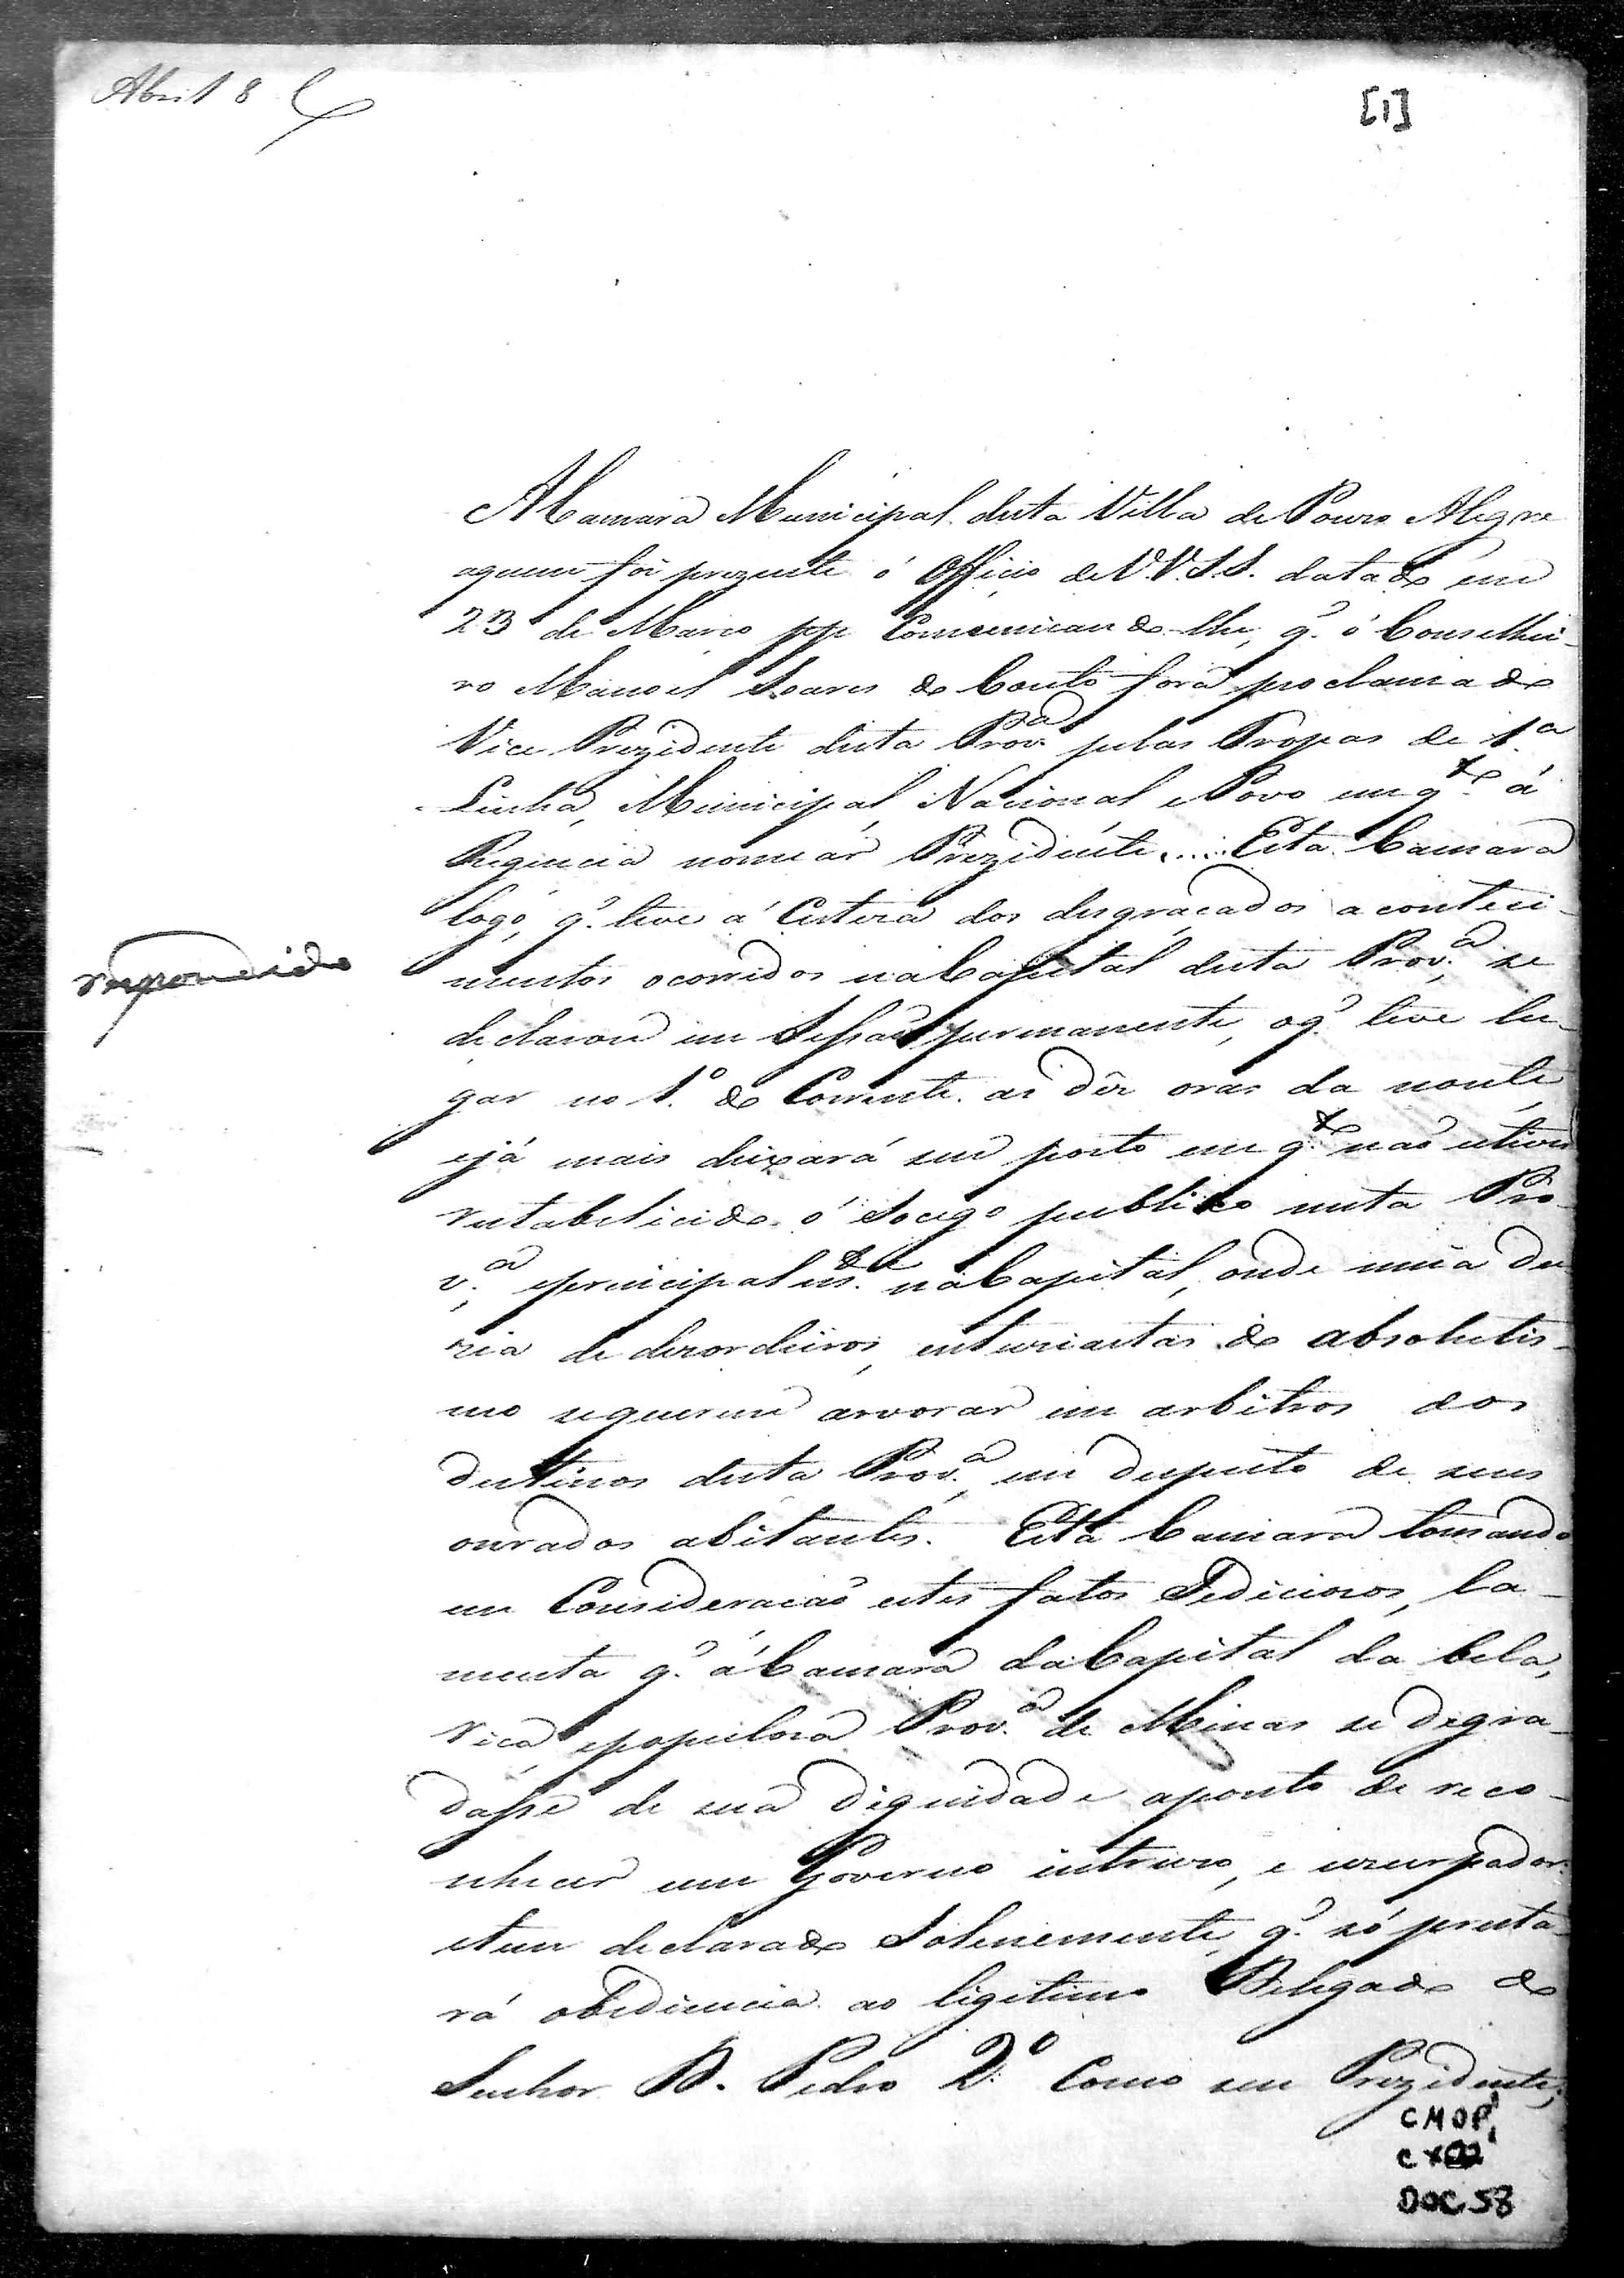 Abril 8
[1]
A Camara Municipal desta Villa de Pouzo Alegre
aquem foi prezente ó Officio de V.V.S.S. datado em
23 de Março pp Comonican do-lhe, q.̃ ó Conselhei-
ro Manoel Soares do Couto fora proclamado
Vice Prezidente desta Prov.ᵃ pelas Tropas de 1.ᵃ
Linha, Municipal, Nacional, e Povo em q.ᵗᵒ á
Regencia nomear Prezidente.... Esta Camara
logo, q.̃ teve á Certeza dos desgraçados aconteci-
mentos ocorridos na Capital desta Prov.ᵃ, se
declarou em Sessaõ permanente, oq.̃ teve lu-
gar no 1.º do Corrente as dês oras da noute,
respondido
ejá mais deixará seu posto em q.ᵗᵒ naõ estiver
restabelicido ó Socego publico nesta Pro-
v.ᵃ, eprincipalm.ᵗᵉ na Capital, onde uma du-
zia de dezordeiros, entuziastas do absolutis-
mo sequerem arvorar em arbitros dos
destinos desta Prov.ᵃ, em despeito de seus
onrados abitantes. Esta Camara tomando
em Consideraçaõ estes fatos Sediciosos, la-
menta q.̃ á Camara da Capital da bela,
rica, epopuloza Prov.ᵃ de Minas se degra-
dasse de sua dignidade aponto de reco-
nhecer um Governo intruzo, e uzurpador:
etem declarado Solenemente, q.̃ só presta-
rá obediencia ao ligitimo Delegado do
Senhor D. Pedro 2.º Como seu Prezidente;
CMOP
CX02
DOC.58